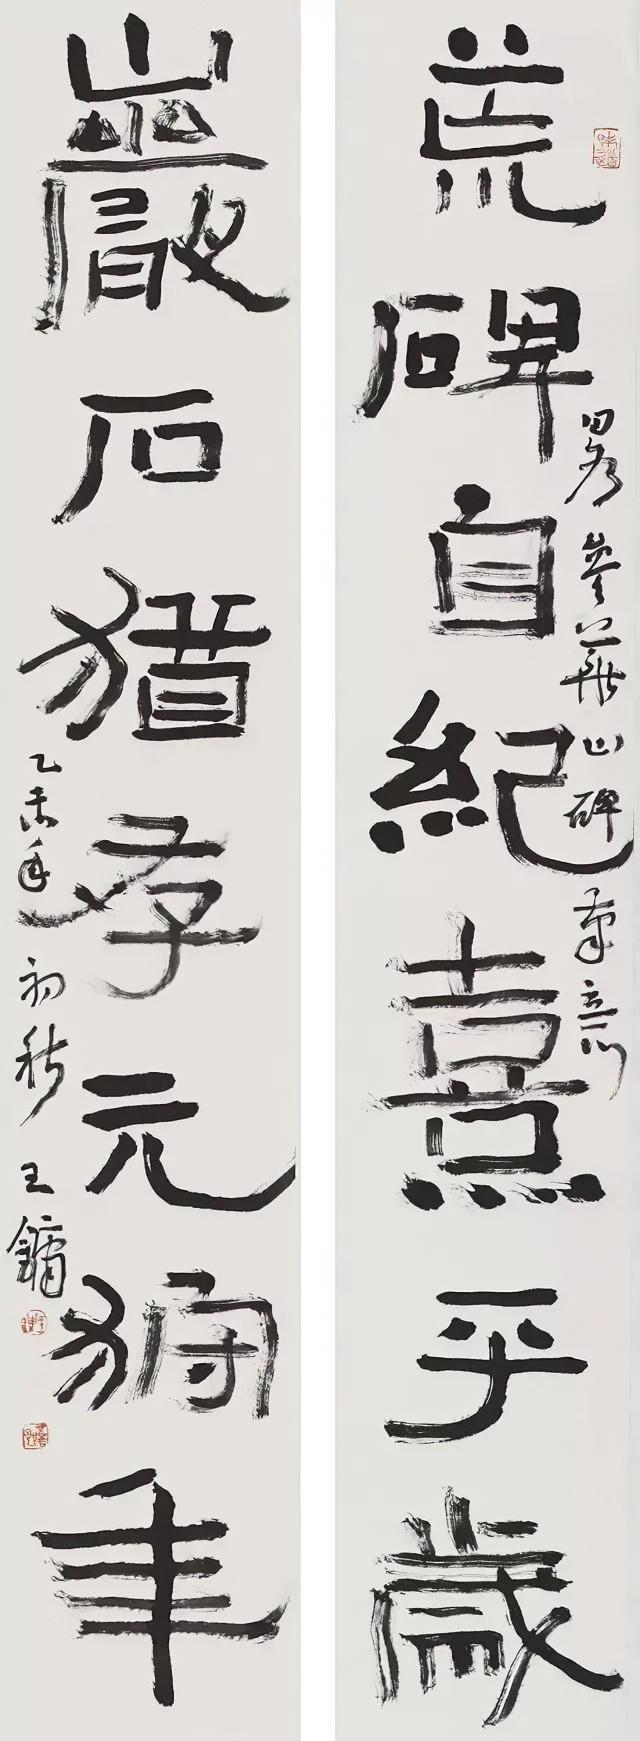 荒碑自紀熹平歲
畧參以華山碑筆意
巖石猶存元狩年
乙未年初秋王鏞